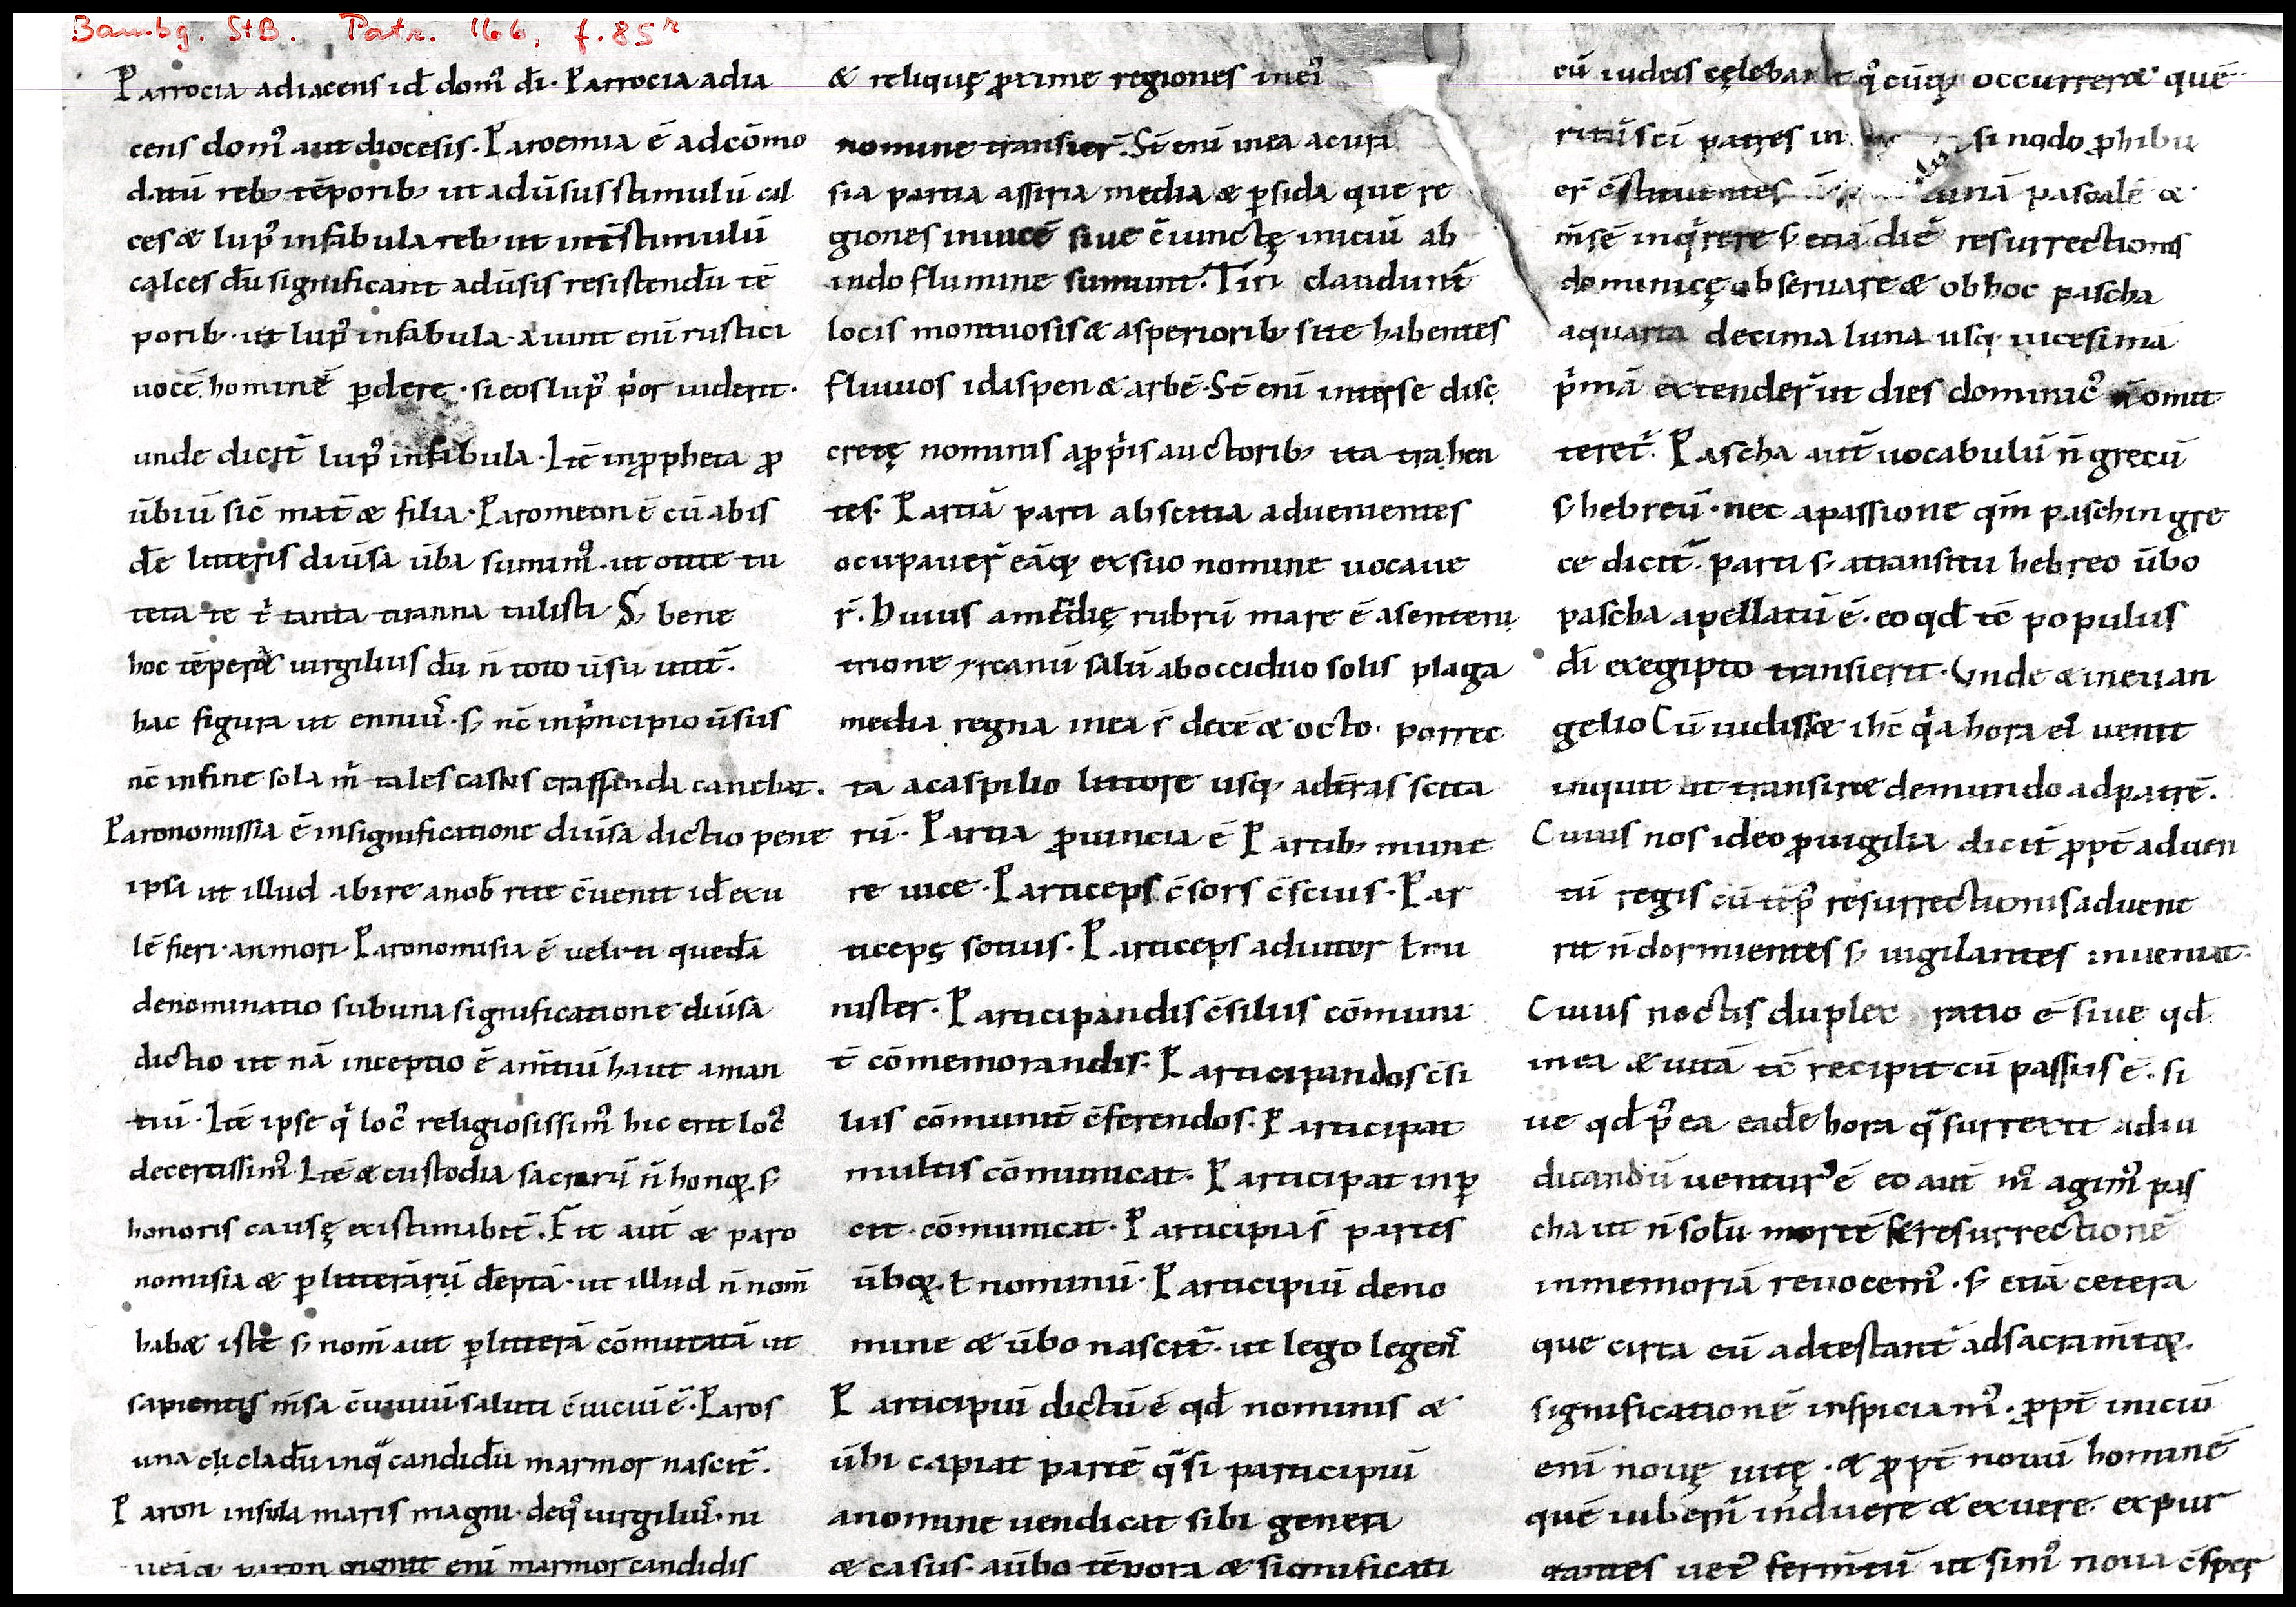 Bambg. StB. Patr. 166, f. 85r
Parrocia adiacens id̄ dom̄ꝰ dī· Parrocia adia
cens domꝰ aut diocesis· Paroemia ē adcōmo
datū reb; tēporib; ut adūsus stimulū cal
ces & lupꝰ infabula reb; ut int̄ stimulū
calces dū significant adūsis resistendū tē
porib; ut lupꝰ infabula· aiunt enī rustici
uocē hominē ꝑdere· si eos lupꝰ pͥor uiderit·
unde dicit᷑ lupꝰ infabula· Itē inꝓpheta ꝓ
ūbiū sic̄ mat̄ & filia· Paromeon ē cū abis
dē litteris diūsa ūba sumimꝰ· ut o tite tu
teta te t̄ tanta tiranna tulisti S; bene
hoc tēper& uirgilius dū n̄ toto ūsu utit᷑·
hac figura ut enniuꝰ· s; nc̄ inpͥncipio ūsus
nc̄ infine sola m̄ tales casus crassenda canebat·
Paronomissia ē insignificatione diūsa dictio pene
ipsi ut illud abire anob̄ rite c̄uenit id̄ exu
lē fieri· an mori· Paronomisia ē veluti quedā
denominatio sub una significatione diūsa
dictio ut nā inceptio ē am̄tiū haut aman
tiū· Itē ipse qͥ locꝰ religiosissimꝰ hic erit locꝰ
decertissimꝰ· Itē & custodia sacrorū n̄ honoꝝ s;
honoris causę existimabit᷑· Fit aut̄ & paro
nomisia & ꝑ litterārū dēptā· ut illud n̄ nom̄
hab& istē s; nom̄ aut ꝑ litterā cōmutatā ut
sapientis m̄sa c̄uiuiū saluti c̄uiciū ē· Paros
una cicladū inqͣ candidū marmor nascit᷑·
Paron insula maris magni· deqͦ uirgiliuꝰ· ni
ueāq; paron gignit enī marmor candidis
& reliquę ꝓxime regiones ineiꝰ
nomine transier̄· St̄ enī inea acura
sia partia assiria media & ꝑsida que re
giones inuicē siue c̄iunctę iniciū ab
indo flumine sumunt· Tiri claudunt᷑
locis montuosis & asperiorib; site habentes
fluuios idaspen & arbē· St̄ enī interse disc
cretę nominis a ꝓpͥis auctorib; ita trahen
tes· Partiā parti abscitia aduenientes
ocupauer̄ eāq; exsuo nomine uocaue
r̄· Huius amēdię rubrū mare ē asentenp
trione yrcanū salū abocciduo solis plaga
media regna inea s̄ decē & octo· porrec
ta acaspilio littore usq; adt̄ras scita
rū· Partia ꝓuincia ē Partib; mune
re uice· Particeps c̄sors c̄scius· Par
ticeps sotius· Particeps adiutor t̄ mi
nister· Participandis c̄siliis cōmuni
t̄ cōmemorandis· Participandos c̄si
liis cōmunit̄ c̄ferendos· Participat
multis cōmunicat· Participat inꝑ
cit· cōmunicat· Participia s̄ partes
ūboꝝ t̄ nominū· Participiū deno
mine & ūbo nascit᷑· ut lego legenꝰ
Participiū dictū ē qd̄ nominis &
ūbi capiat partē qͣsi participiū
anomine uendicat sibi genera
& casus· aūbo tēpora & significati
cū iudeis cęlebar qͥcūq; occurrer& quē
ritū sc̄i patres in sinodo ꝓhibu
er̄ c̄stituentes lunā pascalē &
m̄sē inqͥrere s; etiā diē resurrectionis
dominicę obseruare & obhoc pascha
aquarta decima luna usq; uicesima
pͥmā extender̄ ut dies dominicꝰ n̄ omit
teret᷑· Pascha aut̄ uocabulū n̄ grecū
s; hebreū· nec apassione qm̄ paschin gre
ce dicit᷑· pati s; atransitu hebreo ūbo
pascha apellatū ē· eo qd̄ tē populus
dī exegipto transierit· Unde & ineuan
gelio Cū uidiss& ihc̄ qͥa hora eiꝰ uenit
inquit ut transir& demundo adpatrē·
Cuius nos ideo ꝓuigilia dicit᷑ ꝓpt̄ aduen
tū regis cū tēpꝰ resurrectionis aduene
rit n̄ dormientes s; uigilantes inueniat·
Cuius noctis duplex ratio ē siue qd̄
inea & uitā tē recipit cū passus ē· si
ue qd̄ pꝰ ea eadē hora qͣ surrexit adiu
dicandū uenturꝰ ē eo aut̄ m̄ agimꝰ pas
cha ut n̄ solū mortē & resurrectionē
inmemoriā reuocemꝰ· s; etiā cetera
que circa eū adtestant᷑ adsacram̄toꝝ
significationē inspiciamꝰ· ꝓpt̄ iniciū
enī nouę uitę· & ꝓpt̄ nouū hominē
quē iubem̄ induere & exuere· expur
gantes uetꝰ ferm̄tū ut simꝰ noua c̄sper